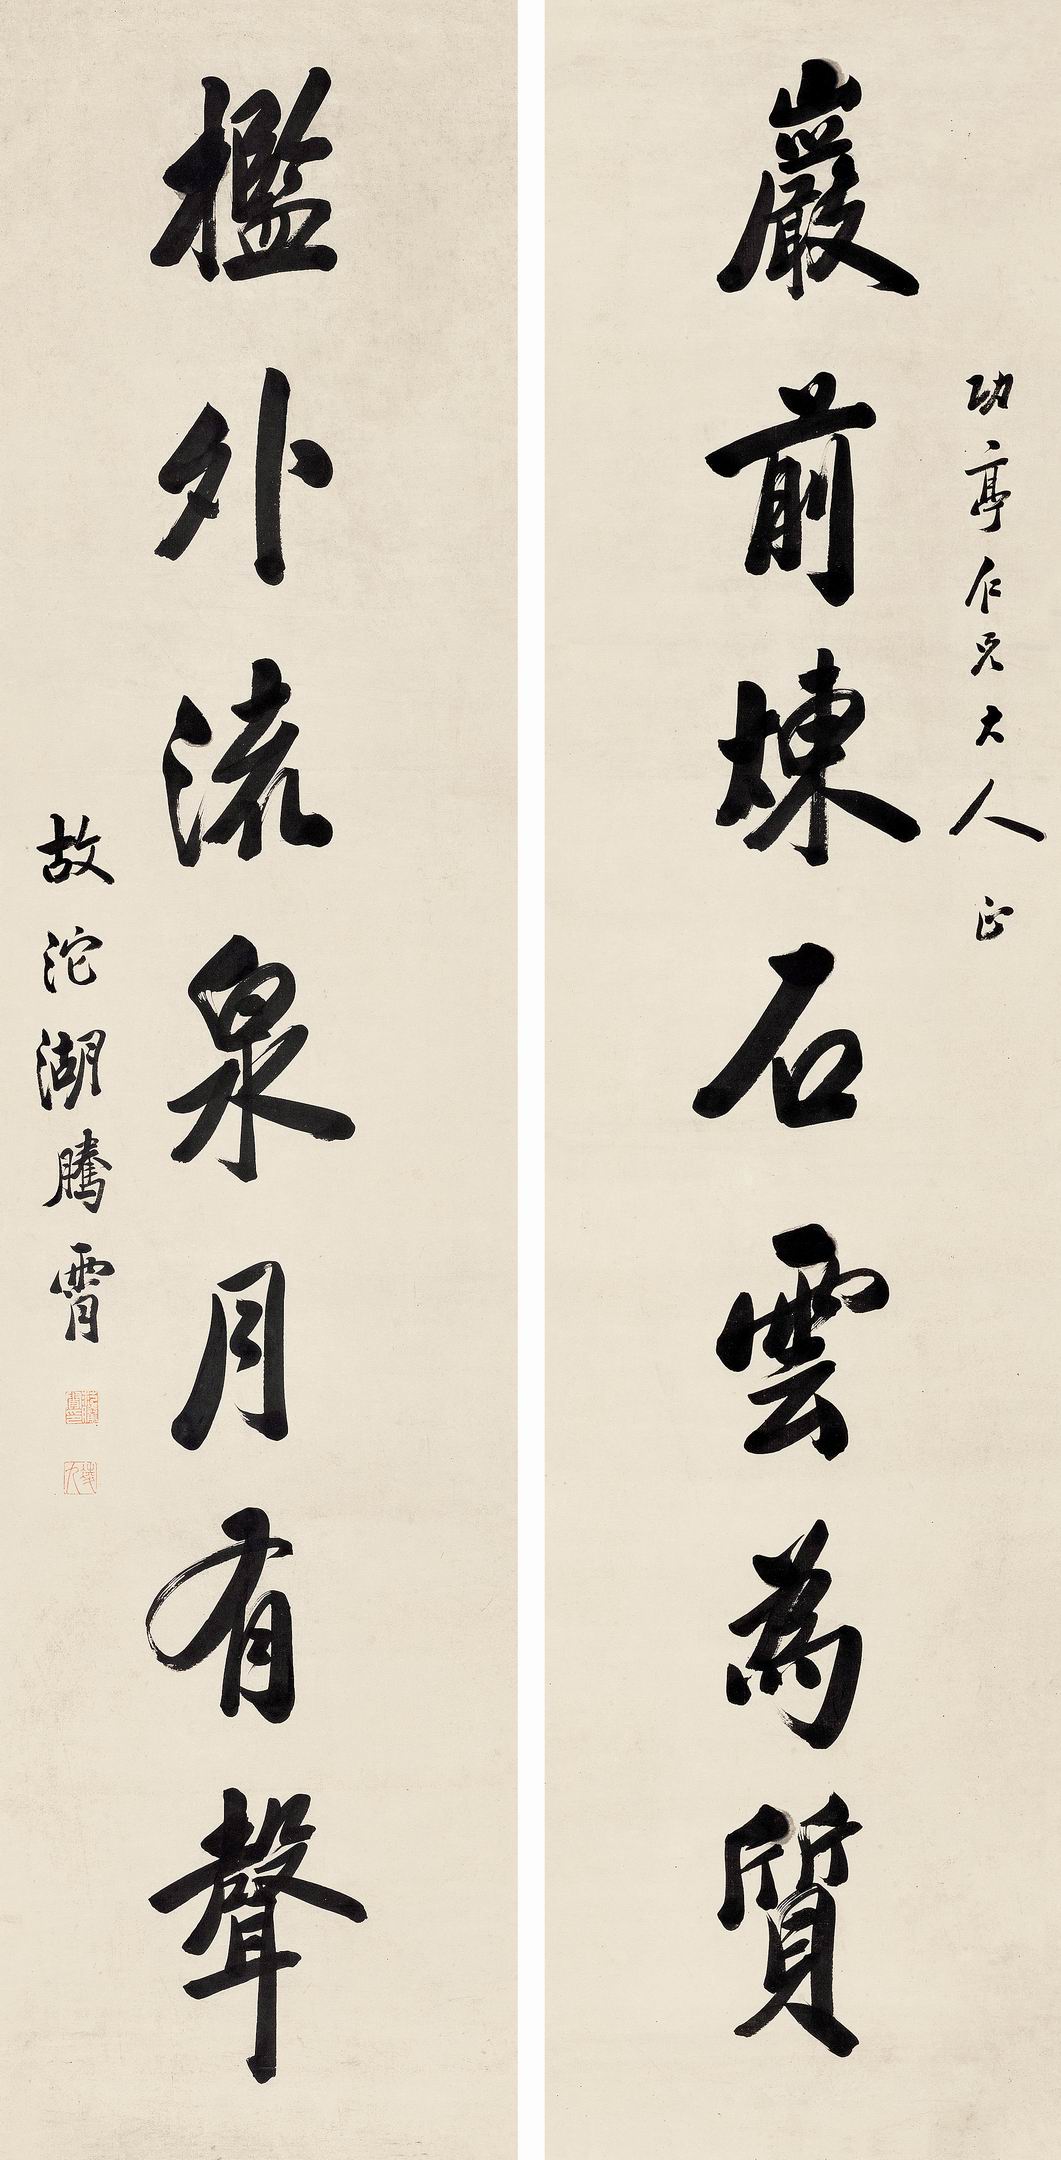 功亭仁兄大人正
巖前煉石雲為質
檻外流泉月有聲
故沱湖騰霄